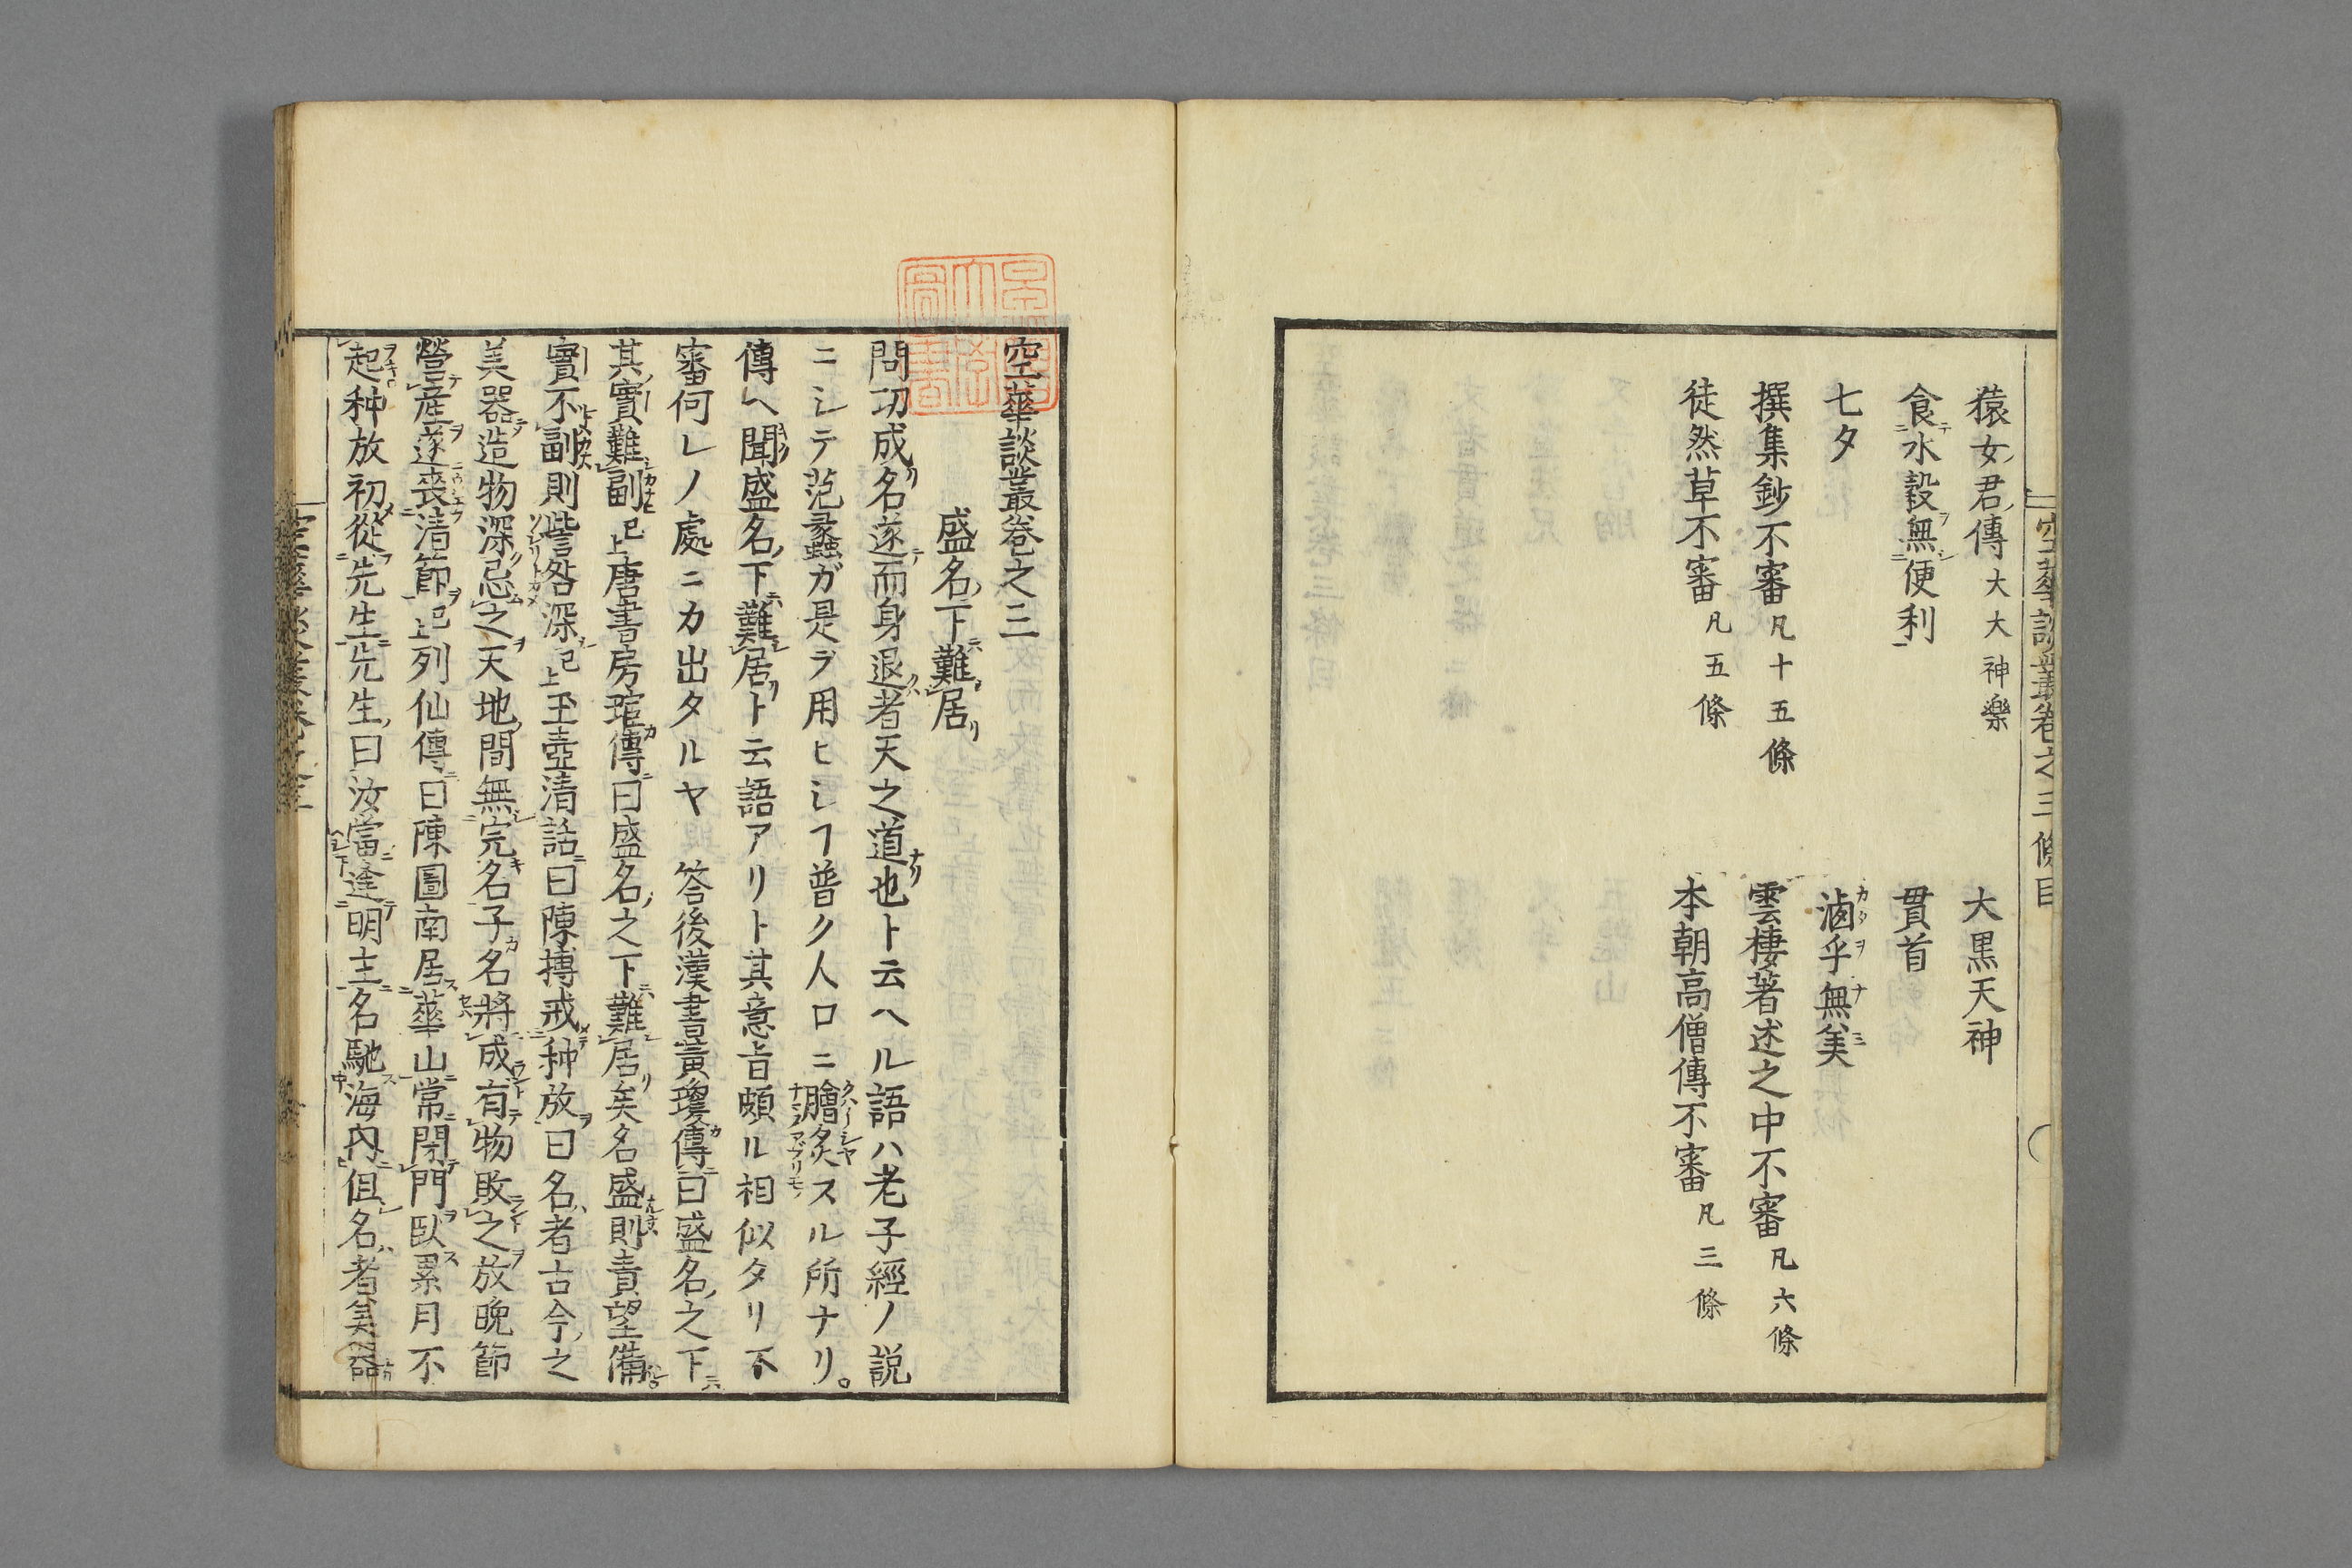 空華談叢卷之三條目
猿女君傳 大大神樂
大黒天神
食水穀無便利
貫首
七夕
滷乎無美
撰集鈔不審 凡十五條
雲棲著述之中不審 凡六條
徒然草不審 凡五條
本朝高僧傳不審 凡三條
空華談叢卷之三
盛名下難居
問功成名遂而身退者天之道也ト云ヘル語ハ老子經ノ説
ニシテ范蠡ガ是ヲ用ヒシヿ普ク人口ニ膾炙スル所ナリ。
傳ヘ聞盛名下難居ト云語アリト其意旨頗ル相似タリ不
審何レノ處ニカ出タルヤ 答後漢書黄瓊傳曰盛名之下
其實難副已上唐書房琯傳曰盛名之下難居矣名盛則責望備
實不副則訾咎深已上玉壺清話曰陳摶戒种放曰名者古今之
美器造物深忌之天地間無完名子名將成有物敗之放晩節
營産遂喪清節已上列仙傳曰陳圖南居華山常閉門臥累月不
起种放初從先生先生曰汝當逢明主名馳海内但名者美器